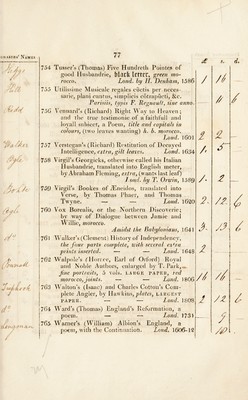 77
754 Tusser's (Thomas) Five Hundreth Pointes of
good Husbandrie, black letter, green mo-
rocco. Lond. by H. Denham, 1586
16
755 Utilissime Musicale regales cùctis per neces-
sarie, plani cantus, simplicis côtrapûcti, &c.
Parisiis, typis F. Regnault, sine anno
4 6
756 Vennard's (Richard) Right Way to Heaven;
and the true testimonie of a faithfull and
loyall subiect, a Poem, title and capitals in
colours, (two leaves wanting) h. b. morocco.
Lond. 1601
2 2
757 Verstegan's (Richard) Restitution of Decayed
Intelligence, extra, gilt leaves. Lond. 1634
1 5
758 Virgil's Georgicks, otherwise called his Italian
Husbandrie, translated into English meter,
by Abraham Fleming, extra, (wants last leaf)
Lond. by T. Orwin, 1589
1 2
759 Virgil's Bookes of Æneidos, translated into
Verse, by Thomas Phaer, and Thomas
Twyne. — — Lond. 1620
2 12 6
760 Vox Borealis, or the Northern Discoverie;
by way of Dialogue between Jamie and
Willie, morocco.
Amidst the Babylonians, 1641
3 13 6
761 Walker's (Clement) History of Independency,
the four parts complete, with several extra
points inserted. — — Lond. 1648
2
762 Walpole's (Horace, Earl of Orford) Royal
and Noble Authors, enlarged by T. Park,
fine portraits, 5 vols. LARGE PAPER, red
morocco, joints. — — Lond. 1806
16 16
763 Walton's (Isaac) and Charles Cotton's Com-
plete Angler, by Hawkins, plates, LARGEST
PAPER. — — Lond. 1808
2 12 6
764 Ward's (Thomas) England's Reformation, a
poem. — — Lond. 1731
9
765 Warner's (William) Albion's England, a
poem, with the Continuation. Lond. 1606-12
10